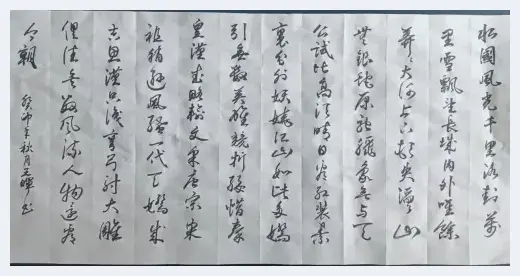 北國風光千里冰封萬
里雪飄望長城内外唯餘
莽々大河上下頓失滔々山
舞銀蛇原馳蠟象欲与天
公試比高須晴日看紅装素
裹分外妖嬈江山如此多嬌
引無數英雄競折腰惜秦
皇漢武略輸文采唐宗宋
祖稍遜風騷一代天驕成
吉思漢只識彎弓射大雕
俱往矣數風流人物還看
今朝
癸卯年秋月王暉书